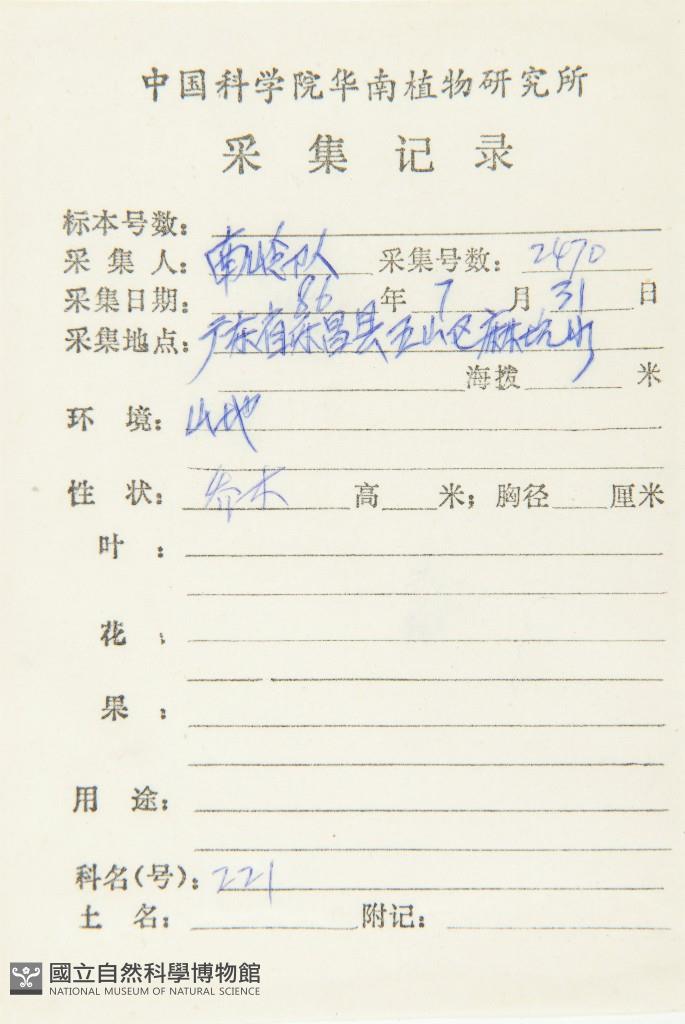 中国科学院华南植物研究所
采集记录
标本号数：
采集人：南岭队 采集号数：2470
采集日期：86年7月31日
采集地点：广东省乐昌县五山区麻坑山
海拨 米
环境：山地
性状：乔木 高 米；胸径 厘米
叶：
花：
果：
用途：
科名(号)：221
土名： 附记：
國立自然科學博物館
NATIONAL MUSEUM OF NATURAL SCIENCE